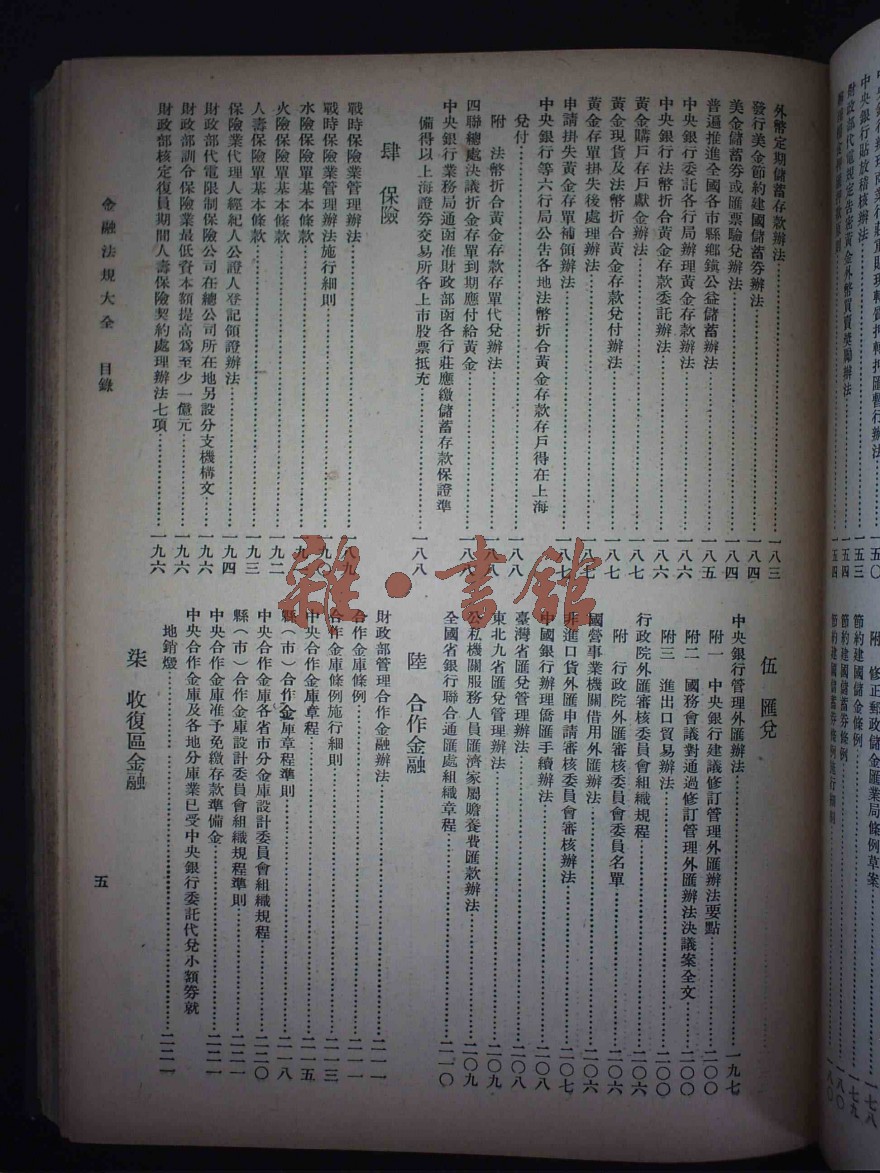 外幣定期儲蓄存款辦法…………一八三
發行美金節約建國儲蓄券辦法…………一八四
美金儲蓄券或匯票驗兌辦法…………一八四
普遍推進全國各市縣鄉鎮公益儲蓄辦法…………一八五
中央銀行委託各行局辦理黃金存款辦法…………一八六
中央銀行法幣折合黃金存款委託辦法…………一八六
黃金購戶存戶獻金辦法…………一八七
黃金現貨及法幣折合黃金存款兌付辦法…………一八七
黃金存單掛失後處理辦法…………一八七
申請掛失黃金存單補領辦法…………一八七
中央銀行等六行局公告各地法幣折合黃金存款存戶得在上海
兌付…………一八八
附 法幣折合黃金存款存單代兌辦法…………一八八
四聯總處決議折金存單到期應付給黃金…………一八八
中央銀行業務局通函准財政部函各行莊應繳儲蓄存款保證準
備得以上海證券交易所各上市股票抵充…………一八八
肆 保險
戰時保險業管理辦法…………一八九
戰時保險業管理辦法施行細則…………一九〇
水險保險單基本條款…………一九一
火險保險單基本條款…………一九二
人壽保險單基本條款…………一九三
保險業代理人經紀人公證人登記領證辦法…………一九四
財政部代電限制保險公司在總公司所在地另設分支機構文…………一九六
財政部訓令保險業最低資本額提高爲至少一億元…………一九六
財政部核定復員期間人壽保險契約處理辦法七項…………一九六
伍 匯兌
中央銀行管理外匯辦法…………一九七
附一 中央銀行建議修訂管理外匯辦法要點…………二〇〇
附二 國務會議對通過修訂管理外匯辦法決議案全文…………二〇〇
附三 進出口貿易辦法…………二〇〇
行政院外匯審核委員會組織規程…………二〇六
附 行政院外匯審核委員會委員名單…………二〇六
國營事業機關借用外匯辦法…………二〇六
非進口貨外匯申請審核委員會審核辦法…………二〇七
中國銀行辦理僑匯手續辦法…………二〇八
臺灣省匯兌管理辦法…………二〇八
東北九省匯兌管理辦法…………二〇九
公私機關服務人員匯濟家屬贍養費匯款辦法…………二〇九
全國省銀行聯合通匯處組織章程…………二一〇
陸 合作金融
財政部管理合作金融辦法…………二一一
合作金庫條例…………二一一
合作金庫條例施行細則…………二一三
中央合作金庫章程…………二一五
縣（市）合作金庫章程準則…………二一八
中央合作金庫各省市分金庫設計委員會組織規程…………二二〇
縣（市）合作金庫設計委員會組織規程準則…………二二一
中央合作金庫准予免繳存款準備金…………二二一
中央合作金庫及各地分庫業已受中央銀行委託代兌小額券就
地銷燬…………二二一
柒 收復區金融
金融法規大全 目錄
五
雜·書館
財政部代電規定告密黃金外幣買賣獎勵辦法
附 修正郵政儲金匯業局條例草案
節約建國儲金條例
節約建國儲蓄券條例